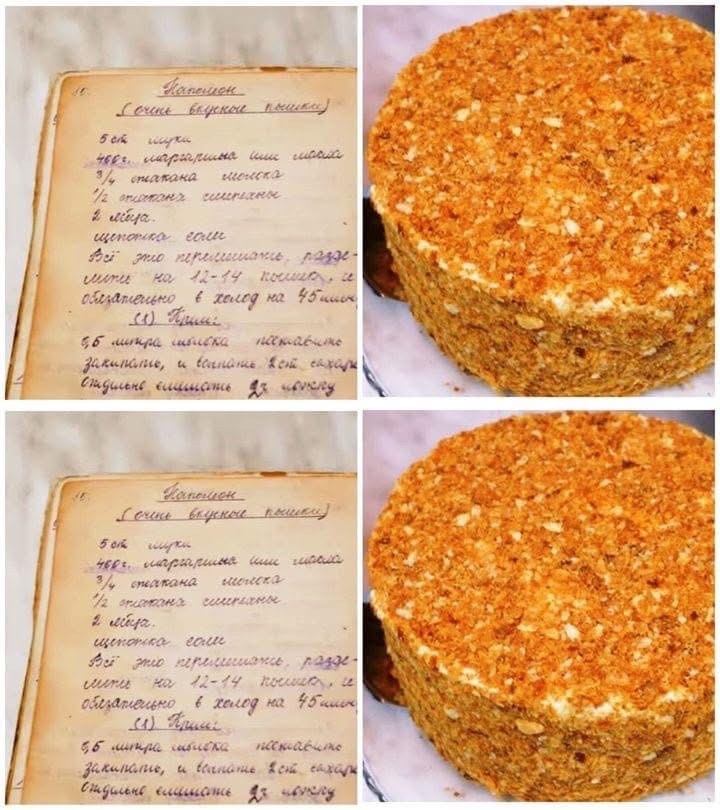 Наполеон
(очень вкусные пышки)
5 ст муки
400 г. маргарина или масла
3/4 стакана молока
1/2 стакана сметаны
2 яйца.
щепотка соли
Всё это перемешать, разде-
лить на 12-14 пышек, и
обязательно в холод на 45 мин
(1) Крем:
0,5 литра молока поставить
закипать, и всыпать 2 ст сахара
Отдельно смешать ложку
Наполеон
(очень вкусные пышки)
5 ст муки
400 г. маргарина или масла
3/4 стакана молока
1/2 стакана сметаны
2 яйца.
щепотка соли
Всё это перемешать, разде-
лить на 12-14 пышек, и
обязательно в холод на 45 мин
(1) Крем:
0,5 литра молока поставить
закипать, и всыпать 2 ст сахара
Отдельно смешать ложку